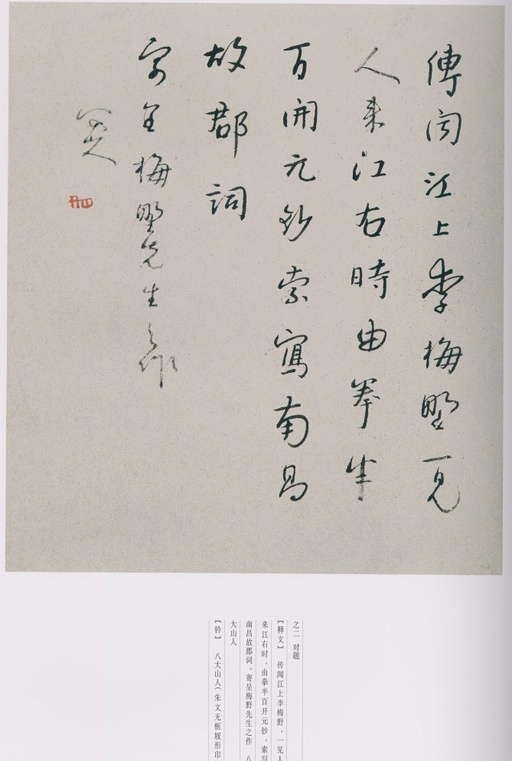 傳闻江上李梅野一見
人来江右時由拳半
百開元鈔索寫南昌
故郡詞
寄呈梅野先生之作
八大山人
之二 对题
【释文】 传闻江上李梅野，一见人
来江右时，由拳半百开元钞，索写
南昌故郡词。寄呈梅野先生之作 八
大山人
【钤】 八大山人（朱文无框屐形印